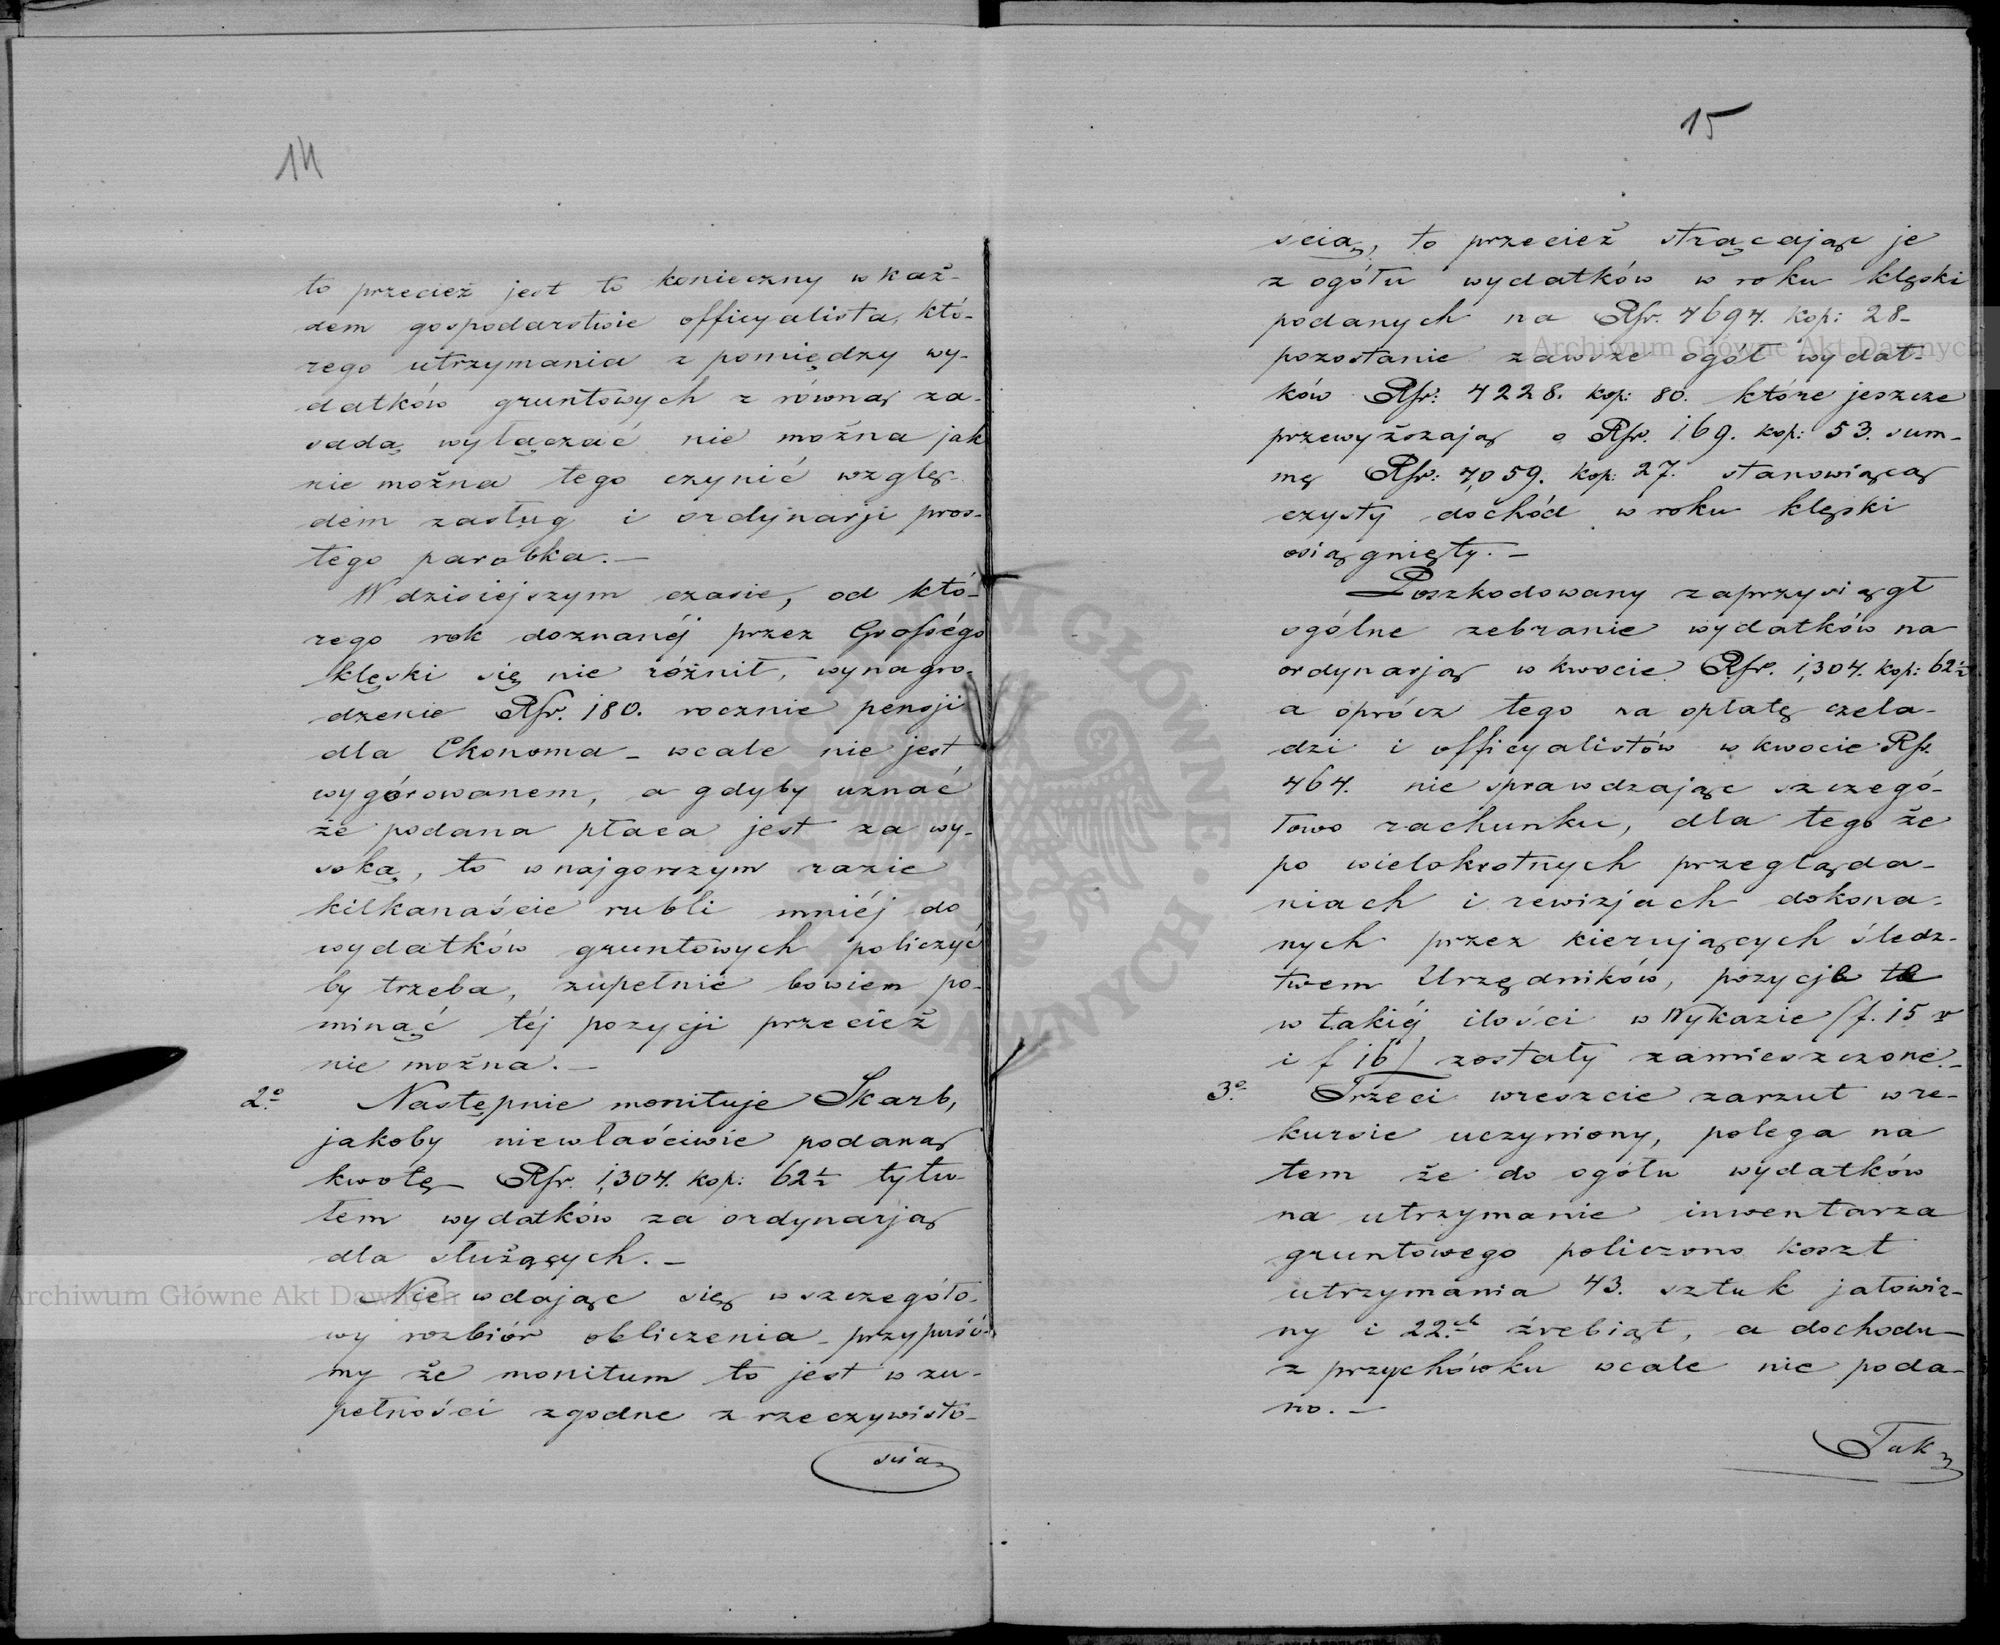 14
to przecież jest to konieczny w każ-
dem gospodarstwie officyalista, któ-
rego utrzymania z pomiędzy wy-
datków gruntowych z równą za-
sadą wyłączać nie można jak
nie można tego czynić wzglę-
dem zasług i ordynarji pros-
tego parobka. —
W dzisiejszym czasie, od któ-
rego rok doznanéj przez
klęski się nie różnił, wynagro-
dzenie Rsr. 180. rocznie pensji
dla Ekonoma – wcale nie jest
wygórowanem, a gdyby uznać
że podana płaca jest za wy-
soką, to w najgorszym razie
kilkanaście rubli mniéj do
wydatków gruntowych policzyć
by trzeba, zupełnie bowiem po-
minąć téj pozycji przecież
nie można. —
2o. Następnie monituje Skarb,
jakoby niewłaściwie podaną
kwotę Rsr. 1,304. kop: 62½ tytu-
łem wydatków za ordynarją
dla służących. —
Nie wdając się w szczegóło-
wy rozbiór obliczenia – przypuść-
my że monitum to jest w zu-
pełności zgodne z rzeczywisto-
ścią
15
ścią, to przecież strącając je
z ogółu wydatków w roku klęski
podanych na Rsr. 4694. kop: 28–
pozostanie zawsze ogół wydat-
ków Rsr: 4228. kop: 80. które jeszcze
przewyższają o Rsr. 169. kop: 53. sum-
mę Rsr: 4,059. kop: 27. stanowiącą
czysty dochód w roku klęski
osiągnięty. —
Poszkodowany zaprzysiągł
ogólne zebranie wydatków na
ordynarją w kwocie Rsr. 1,304. kop: 62½
a oprócz tego na opłatę czela-
dzi i officyalistów w kwocie Rsr.
464. nie sprawdzając szczegó-
łowo rachunku, dla tego że
po wielokrotnych przegląda-
niach i rewizjach dokona-
nych przez kierujących śledz-
twem Urzędników, pozycje te
w takiéj ilości w Wykazie (f. 15 v
i f 16) zostały zamieszczone. –
3o. Trzeci wreszcie zarzut w re-
kursie uczyniony, polega na
tem że do ogółu wydatków
na utrzymanie inwentarza
gruntowego policzono koszt
utrzymania 43. sztuk jałowiz-
ny i 22.ch źrebiąt, a dochodu
z przychówku wcale nie poda-
no. —
Tak
Archiwum Główne Akt Dawnych
Archiwum Główne Akt Dawnych
ARCHIWUM GŁÓWNE AKT DAWNYCH